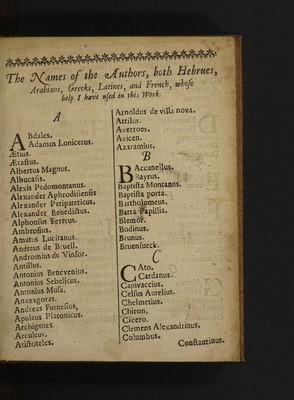 The Names of the Authors, both Hebrues,
Arabians, Greeks, Latines, and French, whose
help I have used in this Work.
A
ABdales.
Adamus Lonicerus.
Ætius.
Ætastus.
Albertus Magnus.
Albucasis.
Alexis Pedomontanus.
Alexander Aphrodisiensis
Alexander Peripateticus.
Alexander Benedictus.
Alphonsus Ferreus.
Ambrosius.
Amatus Lucitanus.
Andreus de Bluell.
Andromius de Vinsor.
Antillus.
Antonius Benevenius.
Antonius Sebelicus.
Antonius Musa.
Anaxagoras.
Andreas Furnesius,
Apuleus Platonicus.
Archigenes.
Arculeus.
Aristoteles.
Arnoldus de villa nova.
Attilus.
Averroes.
Avicen.
Azaramius.
B
BAccanellus.
Bayrus.
Baptista Montanus.
Baptista porta.
Bartholomeus.
Barta Papillis.
Blemor.
Bodinus.
Brunus.
Bruensueck.
C
CAto.
Cardanus.
Capivaccius.
Celsus Aurelius.
Chelmetius.
Chiron,
Cicero.
Clemens Alexandrinus.
Columbus.
Constantinus.